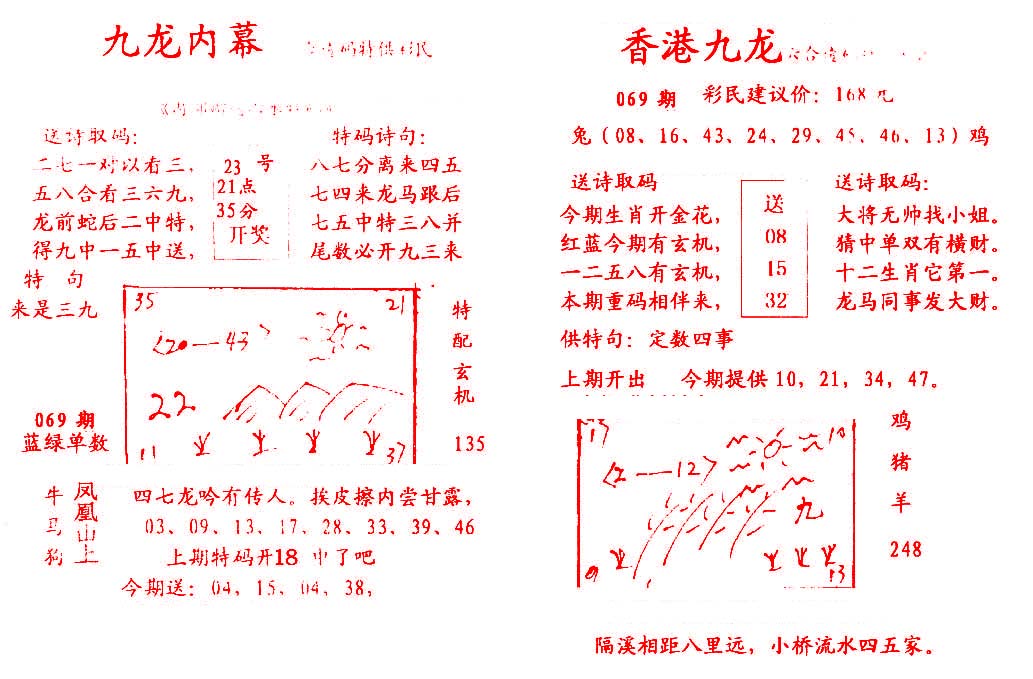 九龙内幕
码特供彩民
送诗取码：
特码诗句：
二七一对以看三，
五八合看三六九，
龙前蛇后二中特，
得九中一五中送，
23 号
21点
35分
开奖
八七分离来四五
七四来龙马跟后
七五中特三八并
尾数必开九三来
特 句
来是三九
35
21
20—43
22
11
37
特配玄机
135
069 期
蓝绿单数
牛马狗
凤凰山上
四七龙吟有传人。挨皮擦内尝甘露，
03、09、13、17、28、33、39、46
上期特码开18 中了吧
今期送：04，15，04，38，
香港九龙
069 期 彩民建议价：168 元
兔（08、16、43、24、29、45、46、13）鸡
送诗取码
今期生肖开金花，
红蓝今期有玄机，
一二五八有玄机，
本期重码相伴来，
送
08
15
32
送诗取码：
大将无帅找小姐。
猜中单双有横财。
十二生肖它第一。
龙马同事发大财。
供特句：定数四事
上期开出 今期提供 10，21，34，47。
17
10
2—12
九
9
13
鸡
猪
羊
248
隔溪相距八里远，小桥流水四五家。